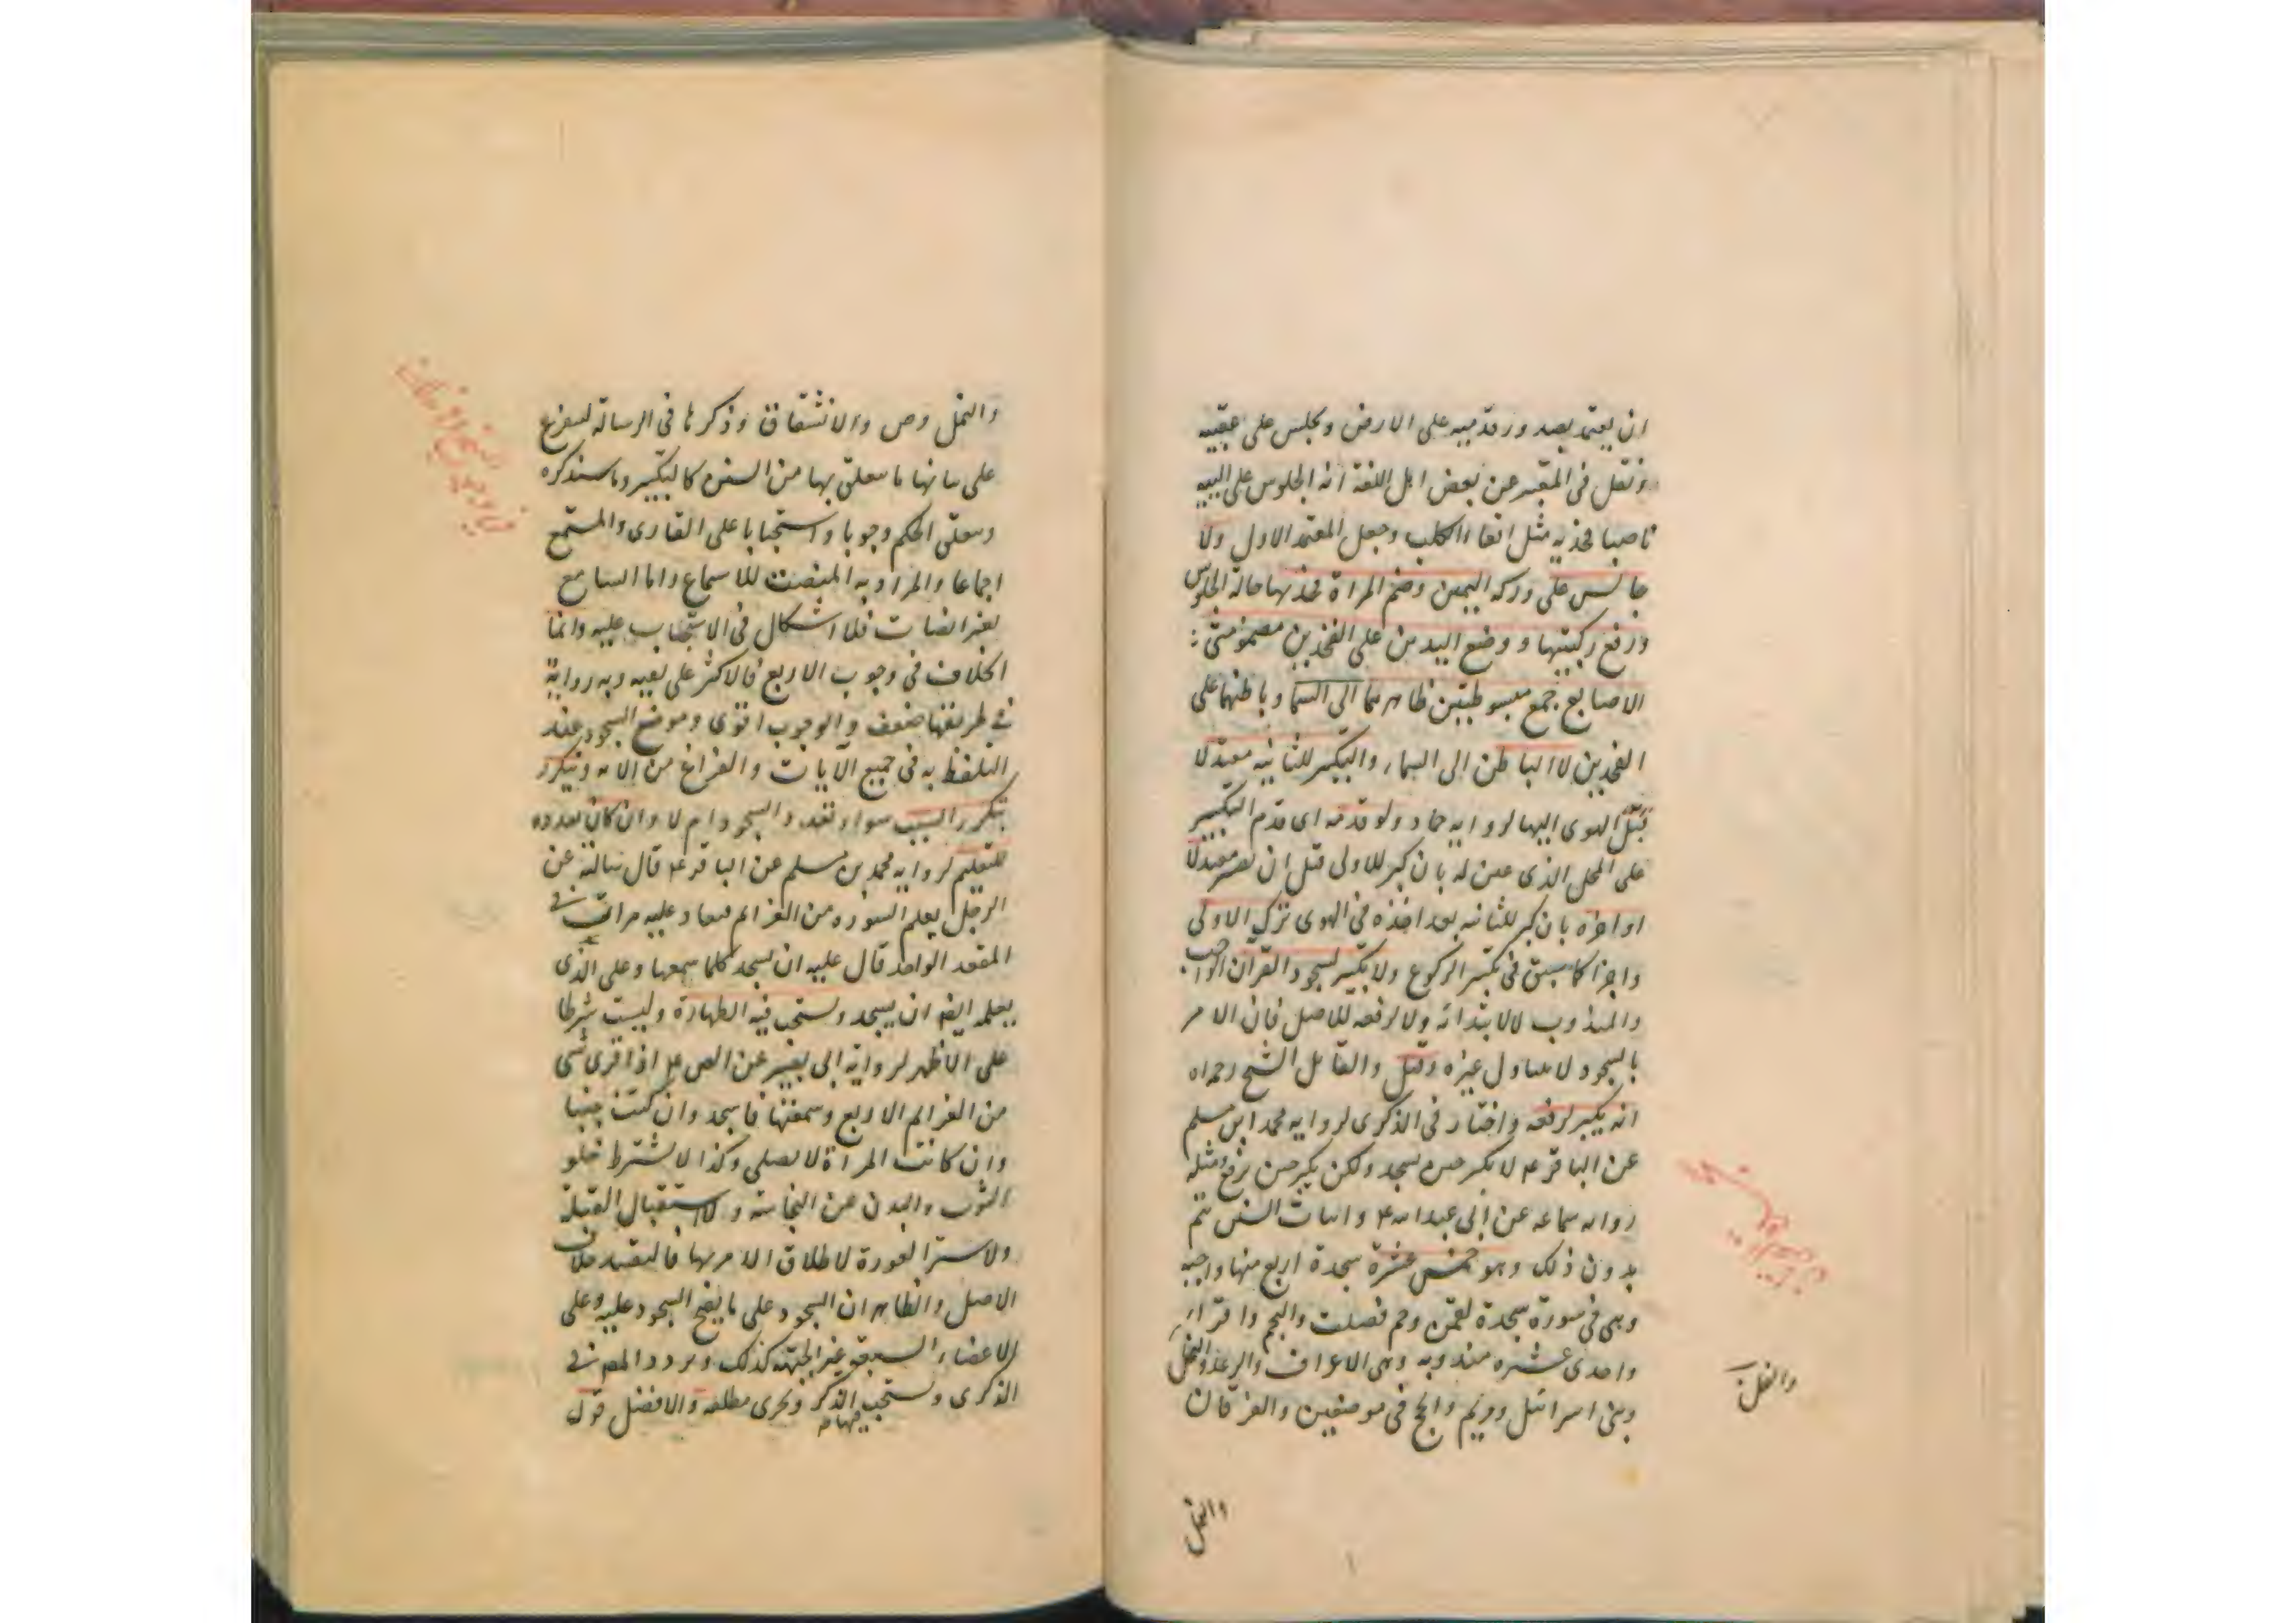 ان يعتمد بصدور قدميه على الارض ويجلس على عقبيه
ونقل فى المعتبر عن بعض اهل اللغة انه الجلوس على اليتيه
ناصبا فخذيه مثل اقعاء الكلب وجعل المعتمد الاول ولا
جالس على وركه اليمين وضم المراة فخذيها حالة الجلوس
ورفع ركبتيها ووضع اليدين على الفخذين مضمومتى
الاصابع جمع مبسوطتين ظاهرهما الى السما وباطنهما على
الفخذين لا الباطن الى السماء والتكبير للثانية معتدلا
قبل الهوى اليها لرواية حماد ولو قدمه اى قدم التكبير
على المحل الذى عين له بان كبر للاولى قبل ان يصير معتدلا
او اخره بان كبر للثانيه بعد اخذه فى الهوى ترك الاولى
واجزا كما سبق فى تكبير الركوع ولا تكبير لسجود القرآن الواجب
والمندوب لا لابتدائه ولا لرفعه للاصل فان الامر
بالسجود لا يتناول غيره وقيل والقايل الشيخ رحمه الله
انه يكبر لرفعه واختار فى الذكرى لرواية محمد ابن مسلم
عن الباقر ع لا يكبر حين يسجد ولكن يكبر حين يرفع ومثله
رواية سماعه عن ابى عبد الله ع واثبات السنن يتم
بدون ذلك وهو خمس عشرة سجدة اربع منها واجبه
وهى فى سورة سجدة لقمن وحم فصلت والنجم واقراء
واحدى عشره مندوبه وهى الاعراف والرعد والنحل
وبنى اسرائيل ومريم والحج فى موضعين والفرقان
والنمل
والنمل وص والانشقاق وذكرها فى الرسالة ليفرع
على بيانها ما يتعلق بها من السنن كالتكبير وما سنذكره
ويتعلق الحكم وجوبا واستحبابا على القارى والمستمع
اجماعا والمراد به المنصت للاسماع واما السامع
بغير انصات فلا اشكال فى الاستحباب عليه وانما
الخلاف فى وجوب الاربع فالاكثر على نفيه وبه رواية
فى طريقها ضعف والوجوب اقوى وموضع السجود عند
التلفظ به فى جميع الآيات والفراغ من الآية ويتكرر
بتكرر السبب سواء تعدد السجود ام لا وان كان تعدده
للتعليم لرواية محمد بن مسلم عن الباقر ع قال سالته عن
الرجل يعلم السوره من العزايم فيعاد عليه مرات فى
المقعد الواحد قال عليه ان يسجد كلما سمعها وعلى الذى
يعلمه ايضا ان يسجد ويستحب فيه الطهارة وليست شرطا
على الاظهر لرواية ابى بصير عن الص ع اذا قرى شى
من العزايم الاربع وسمعتها فاسجد وان كنت جنبا
وان كانت المراة لا تصلى وكذا لا يشترط خلو
الثوب والبدن عن النجاسة ولا استقبال القبلة
ولا ستر العورة لاطلاق الامر بها فالتقييد خلاف
الاصل والظاهر ان السجود على ما يصح السجود عليه وعلى
الاعضاء السبعة غير الجبهة كذلك وتردد المص فى
الذكرى ويستحب الذكر فيها ويجزى مطلقه والافضل قول